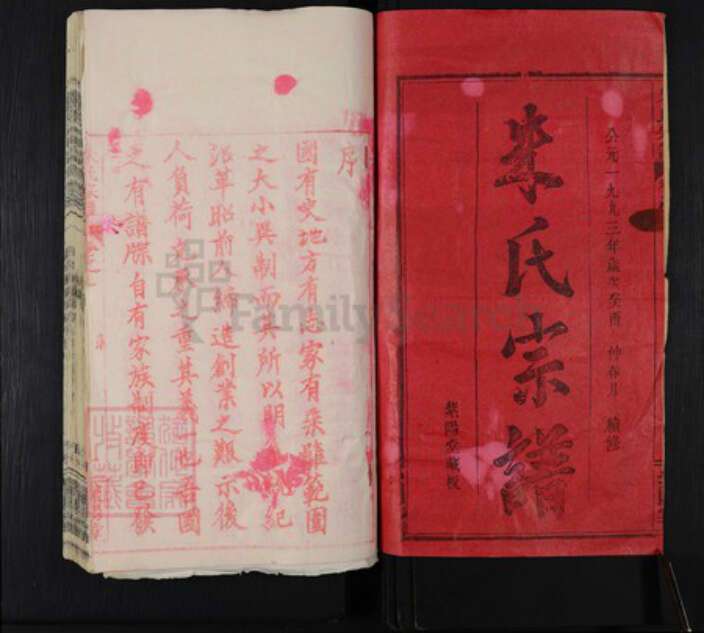 公元一九九三年歲次癸酉 仲春月 續修
李氏宗譜
紫陽堂藏板
序
國有史地方有志家有乘雖範圍
之大小異制而其所以明 紀
沿革昭前 編遺創業之艱示後
人負荷 之重其義一也吾國
之有譜牒自有家族制度即已發
FamilySearch